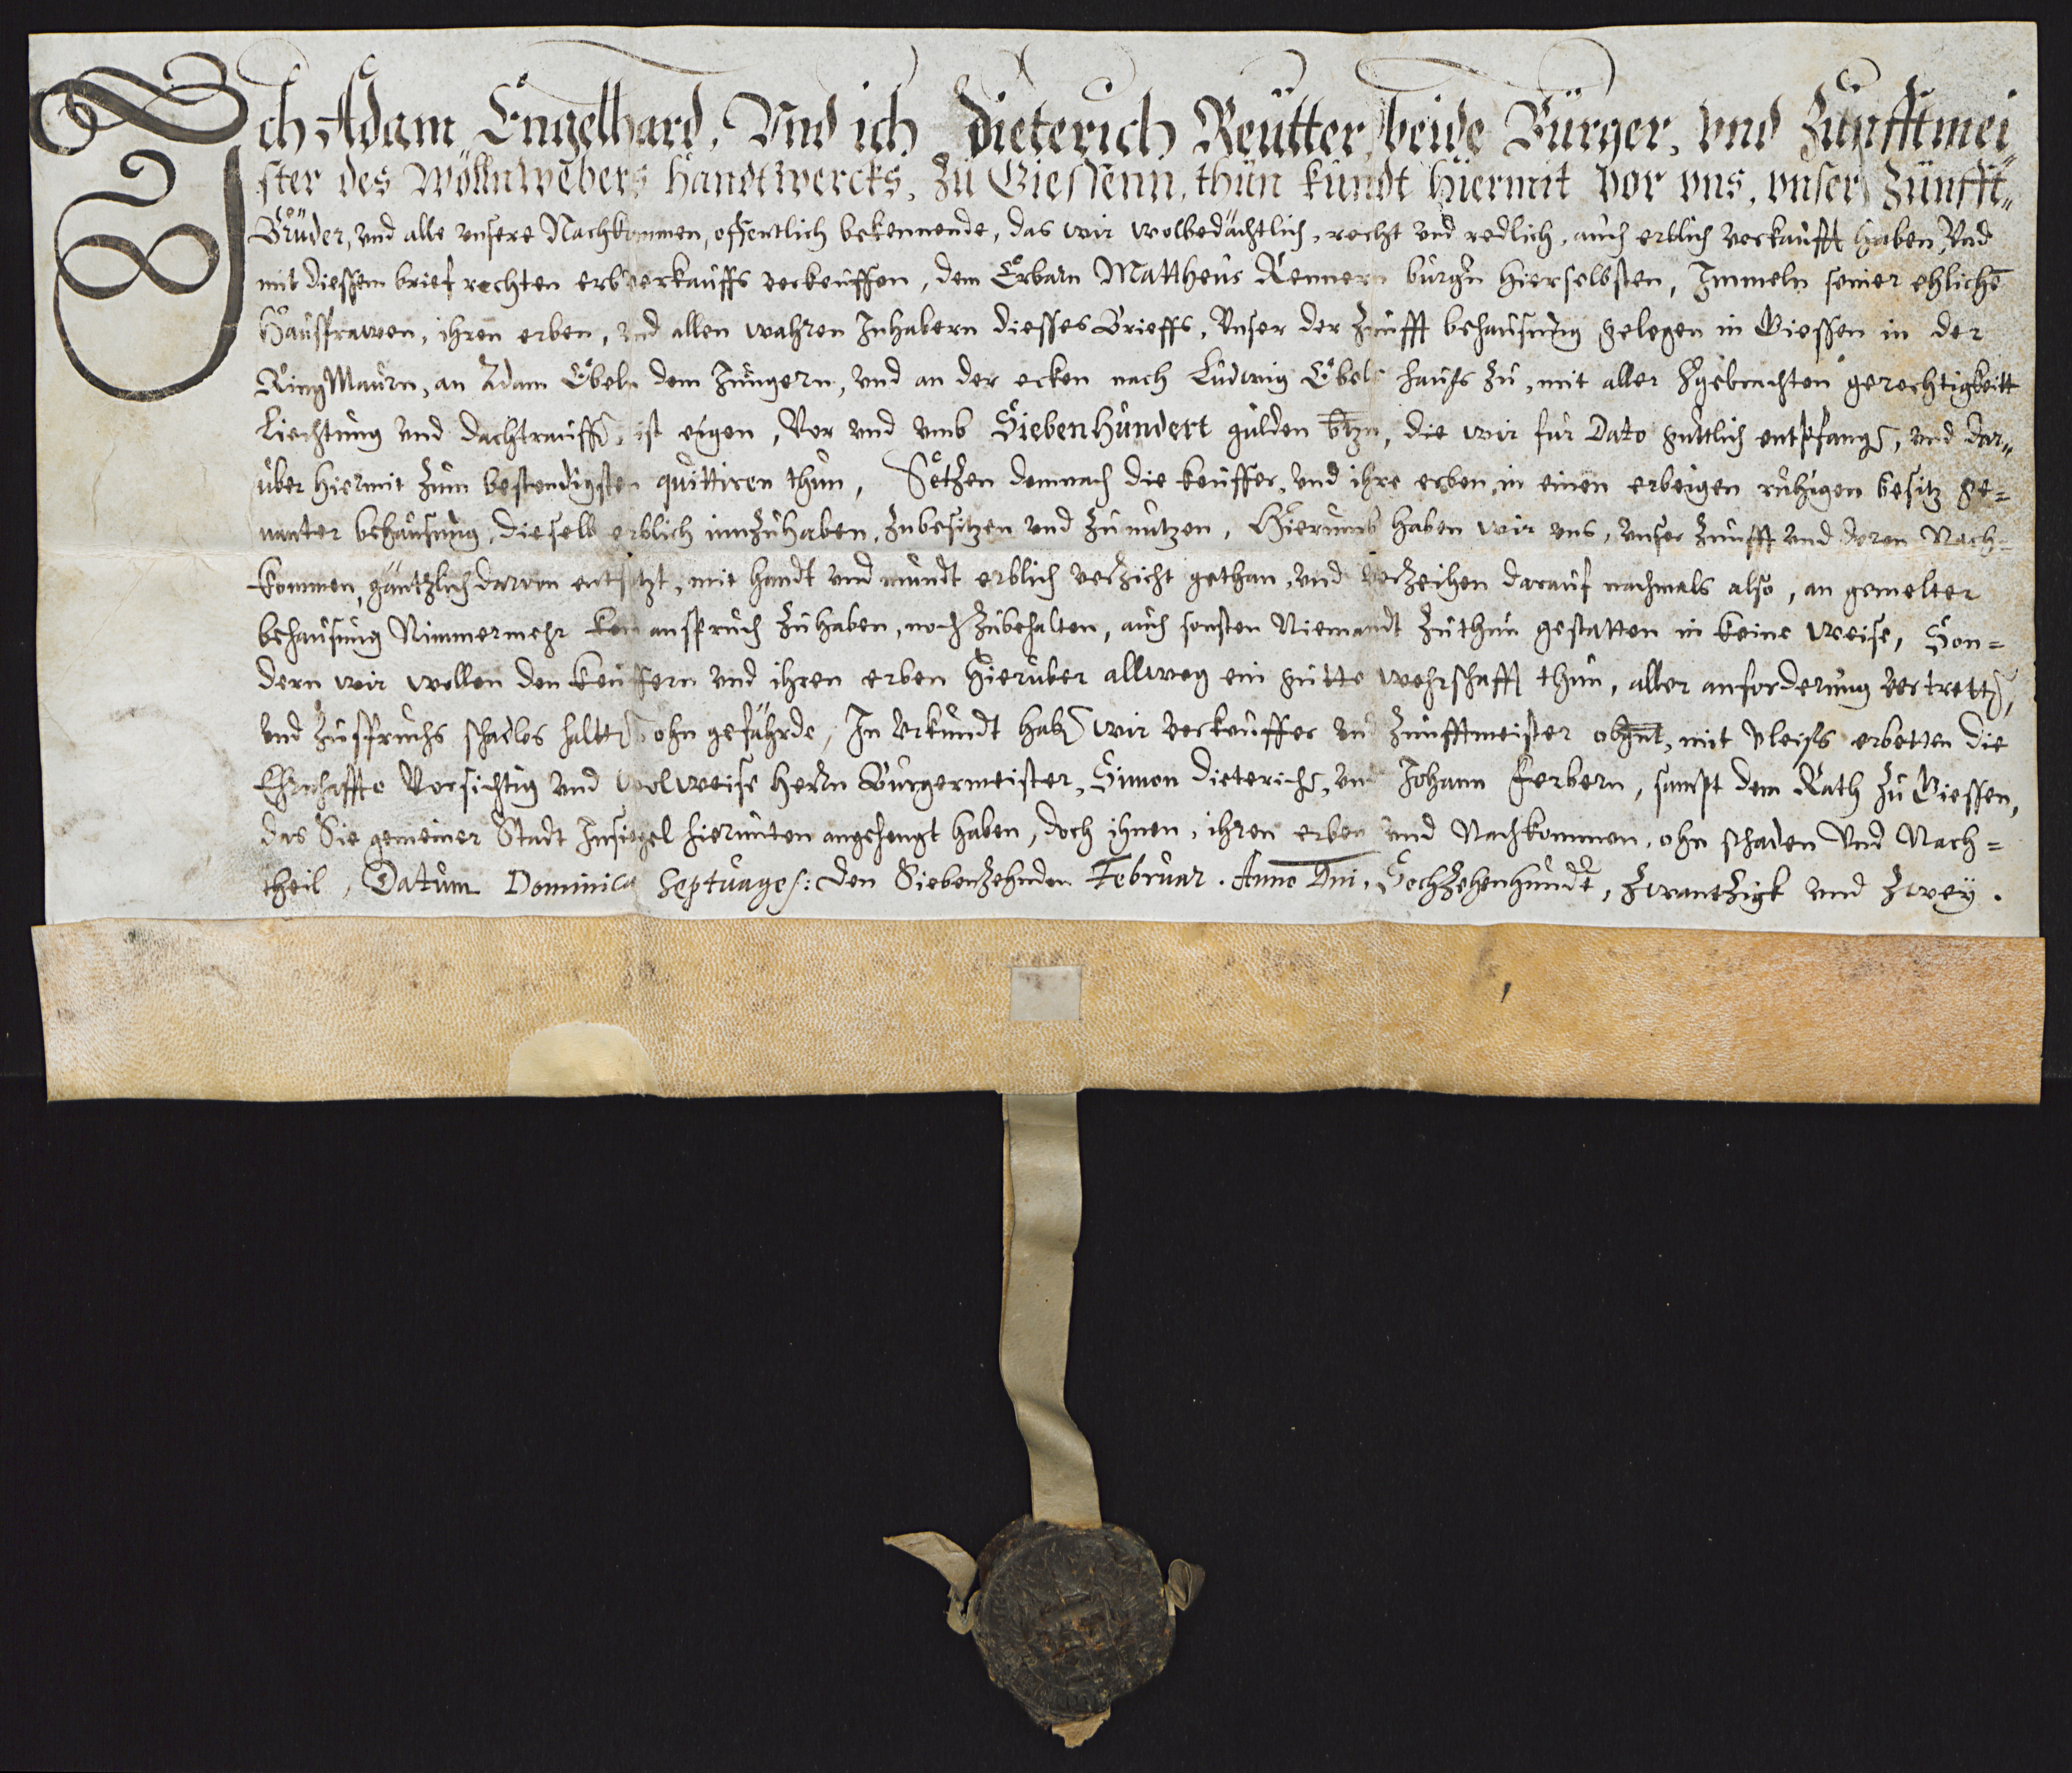 Ich Adam Engelhard, Vnd ich Dieterich Reutter, beide Bürger, vnd Zunfftmei„
ster des Wöllnwebers Handtwercks, zu Giessenn, thun kundt hiermit vor vns, vnser Zunfft„
Brüder, vnd alle vnsere Nachkommen, offentlich bekennende, das wir wolbedächtlich, recht vnd redlich, auch erblich verkaufft haben, Vnd
mit diessem brief rechten erbverkauffs verkeuffen, dem Erbarn Mattheus Rennern burgern hierselbsten, Immeln seiner ehlichē
Hausfrawen, ihren erben, vnd allen wahren Inhabern diesses Brieffs, Vnser der Zunfft behausung gelegen in Giessen in der
RingMaurn, an Adam Ebeln dem Jüngern, vnd an der ecken nach Ludwig Ebels hauss zu, mit aller hgebrachten gerechtigkeitt
Liechtung vnd dachtrauffē, ist eigen, Vor vnd vmb Siebenhundert gulden btzn, die wir für Dato guttlich entpfangē, vnd dar„
über hiermit zum bestendigsten quittiren thun, Setzen demnach die keuffer, vnd ihre erben, in einen erbeigen ruhigen besitz ge=
nanter behausung, dieselb erblich innzuhaben, zubesitzen vnd zu nutzen, Hierumb haben wir vns, vnser Zunfft vnd deren Nach=
kommen, gäntzlich darvon entsetzt, mit handt vnd mundt erblich verzicht gethan, vnd verzeihen darauf nachmals also, an gemelter
behausung Nimmermehr kein anspruch zu haben, noch zubehalten, auch sonsten Niemandt zuthun gestatten in keine weise, Son=
dern wir wollen den keuffern vnd ihren erben hierüber allweg ein gutte wehrschafft thun, aller anforderung vertrettē,
vnd zuspruchs schadlos halttē ohn gefährde, In Vrkundt habē wir verkeuffer vnd Zunfftmeister obgnt, mit vleiss erbetten die
Ehrnhaffte Vorsichtig vnd wolweise Herrn Burgermeister, Simon Dieterichē, vnd Johann Ferbern, sampt dem Rath zu Giessen,
das Sie gemeiner Stadt Insiegel hierunten angehengt haben, doch ihnen, ihren erben vnd Nachkommen, ohn schaden Vnd Nach=
theil, Datum Dominica Septuages: den Siebenzehnden Februar. Anno Dni, Sechzehenhundt, Zwantzigk vnd Zwey.